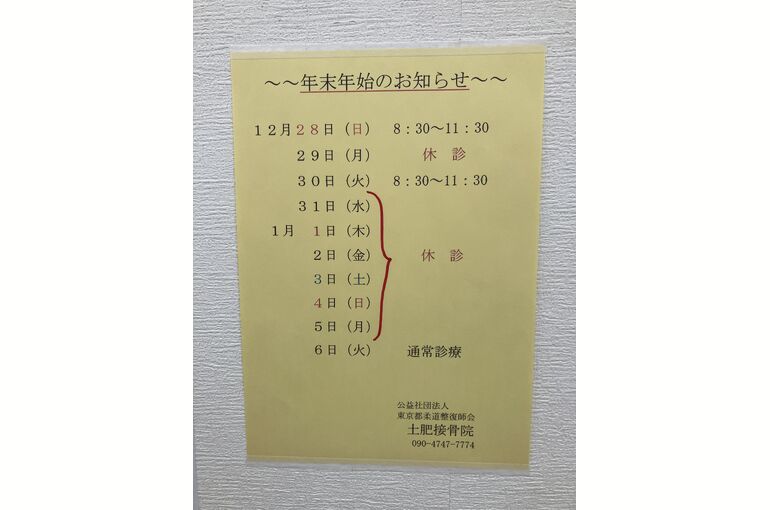 ～～年末年始のお知らせ～～
１２月２８日（日） ８：３０～１１：３０
２９日（月） 休 診
３０日（火） ８：３０～１１：３０
３１日（水）
１月 １日（木）
２日（金） 休 診
３日（土）
４日（日）
５日（月）
６日（火） 通常診療
公益社団法人
東京都柔道整復師会
土肥接骨院
090-4747-7774